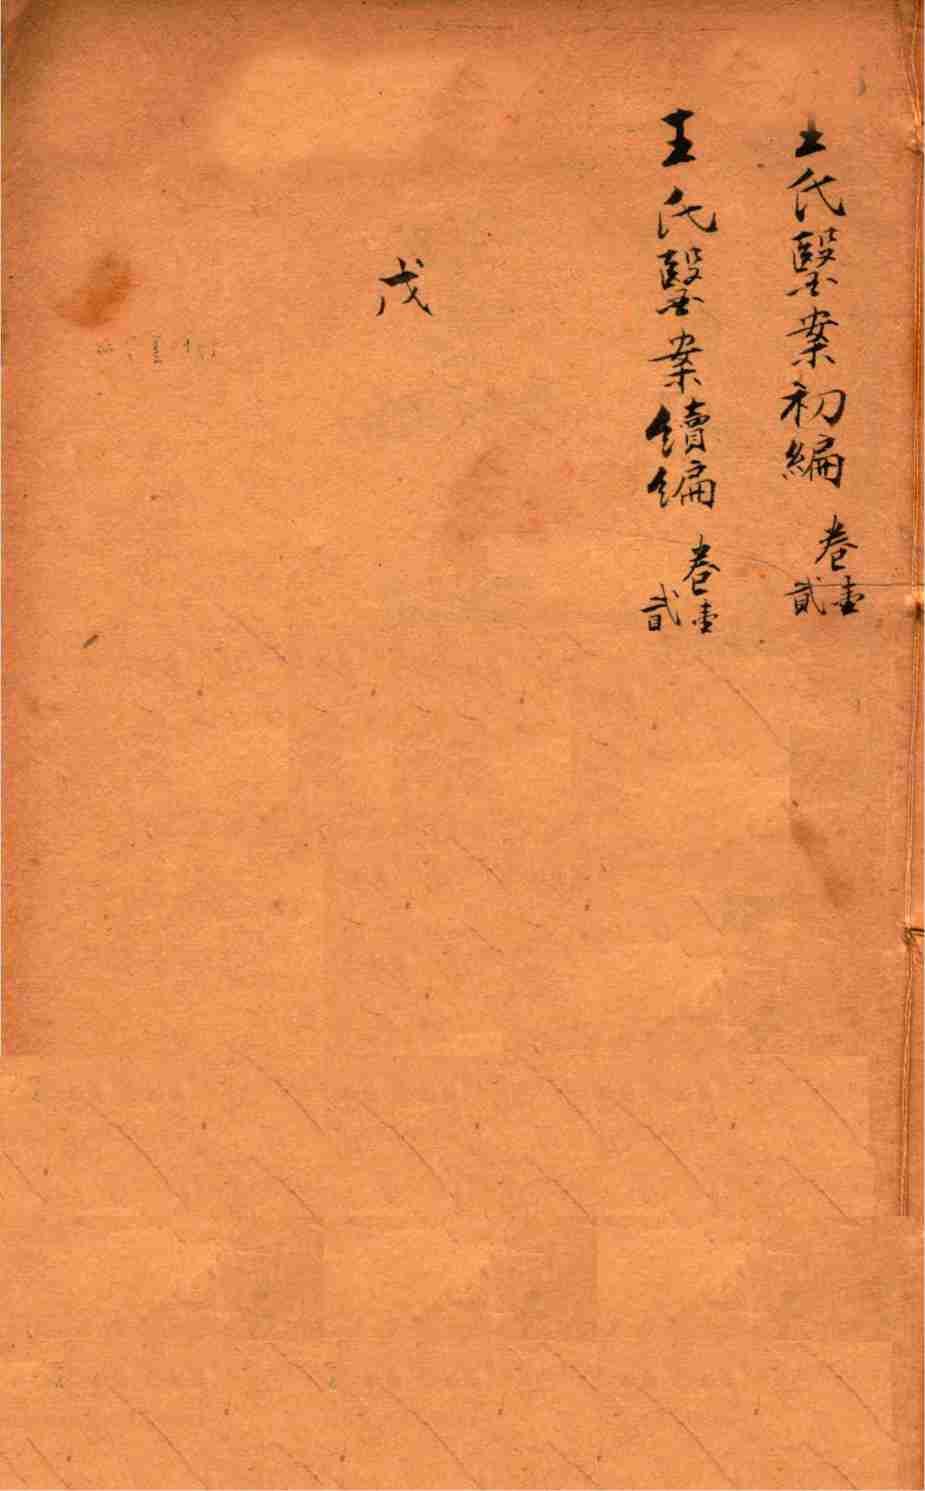 王氏毉案初編 卷壹貳
王氏毉案續編 卷壹貳
戊